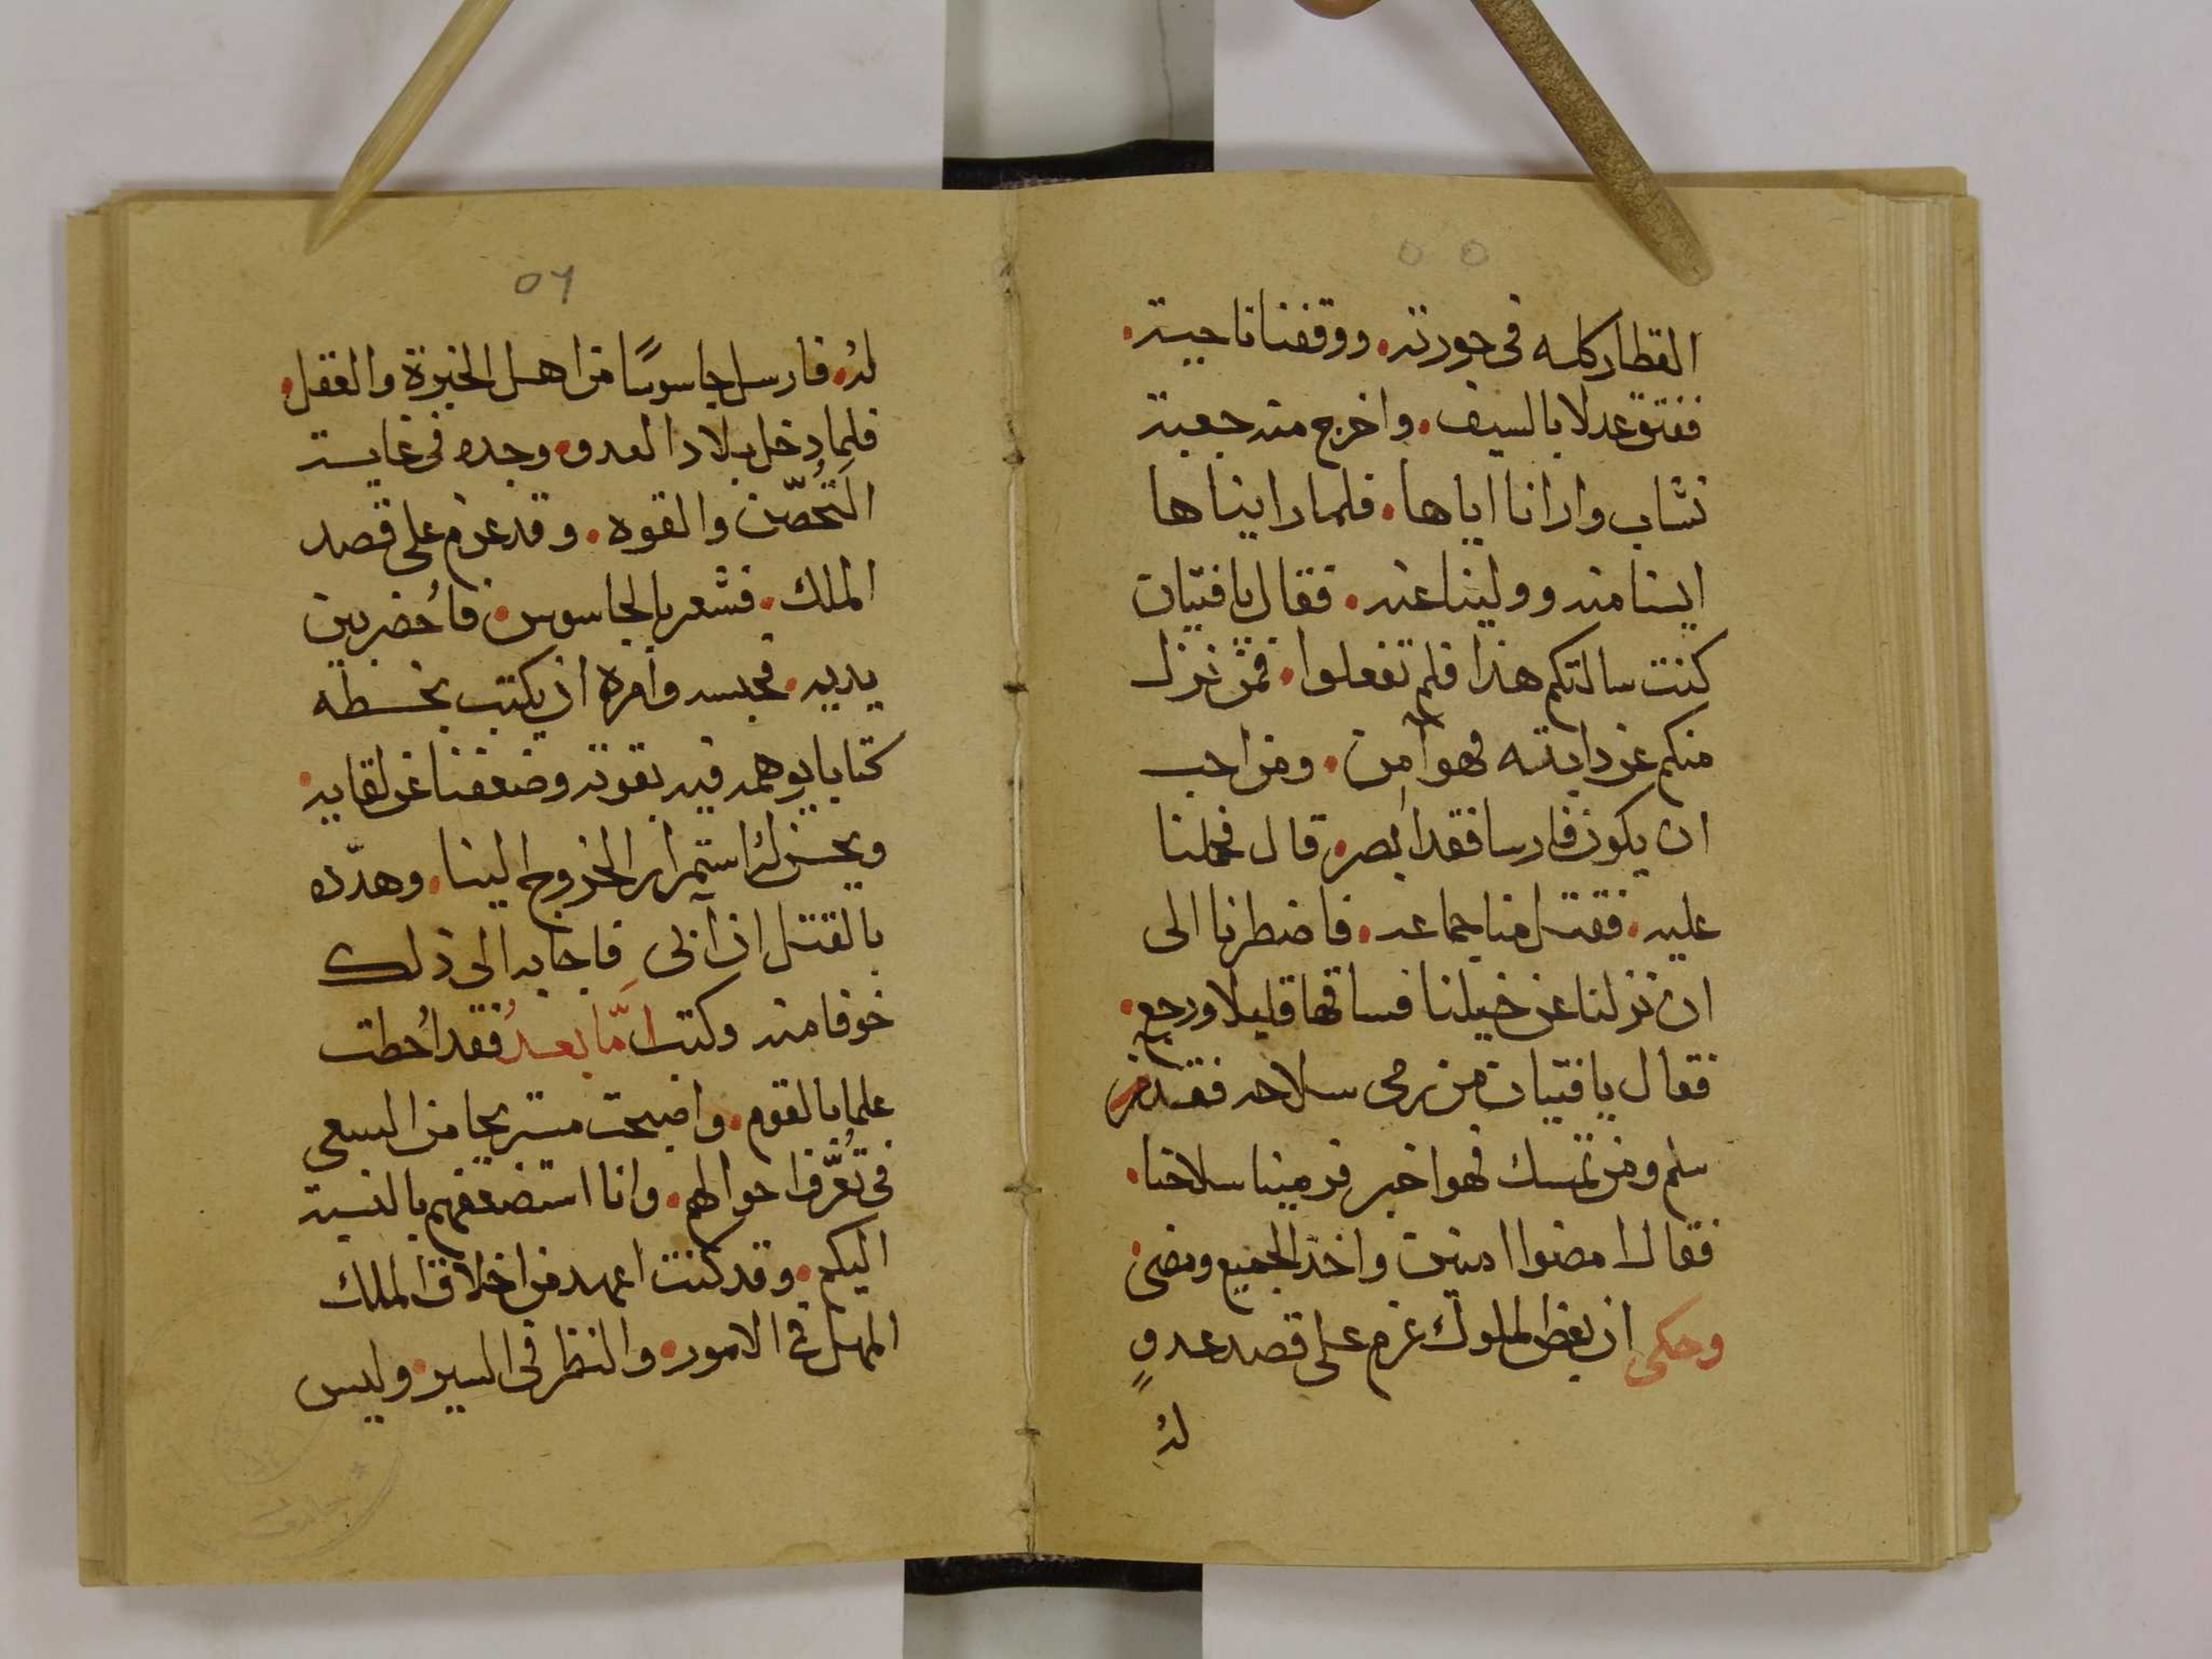 ٥٥
القطار كله فى جورته. ووقفنا ناحية.
ففتق عدلا بالسيف. واخرج منه جعبة
نشاب وارانا اياها. فلما رايناها
ايسنا منه وولينا عنه. فقال يا فتيان
كنت سالتكم هذا فلم تفعلوا. فمن نزل
منكم عن دابته فهو آمن. ومن احب
ان يكون فارسا فقد ابصر. قال فحملنا
عليه. فقتل منا جماعه. فاضطرنا الى
ان نزلنا عن خيلنا فساقها قليلا ورجع.
فقال يا فتيان من رمى سلاحه فقد
سلم ومن تمسك فهو اخبر فرمينا سلاحنا.
فقال امضوا امنين واخذ الجميع ومضى
وحكى ان بعض الملوك عزم على قصد عدوٍ
لهُ
٥٦
لهُ. فارسل جاسوسًا من اهل الخبرة والعقل.
فلما دخل بلاد العدو. وجده فى غاية
التَحُصّن والقوه. وقد عزم على قصد
الملك. فشعر بالجاسوس. فاُحضر بين
يديه. فحبسه وامره ان يكتب بخطه
كتابا يوهمه فيه بقوته وضعفنا عن لقايه.
ويحسن لهُ استمرار الخروج الينا. وهدّده
بالقتل ان آبى فاجابه الى ذلك
خوفا منه وكتب امَّا بعدُ فقد اُحطت
علما بالقوم. واصبحت مستريحا من السعى
فى تُعَّرف احوالهم. وانا استضعفهم بالنسبة
اليكم. وقد كنت اعهد من اخلاق الملك
المهل فى الامور. والنظر فى السير. وليس